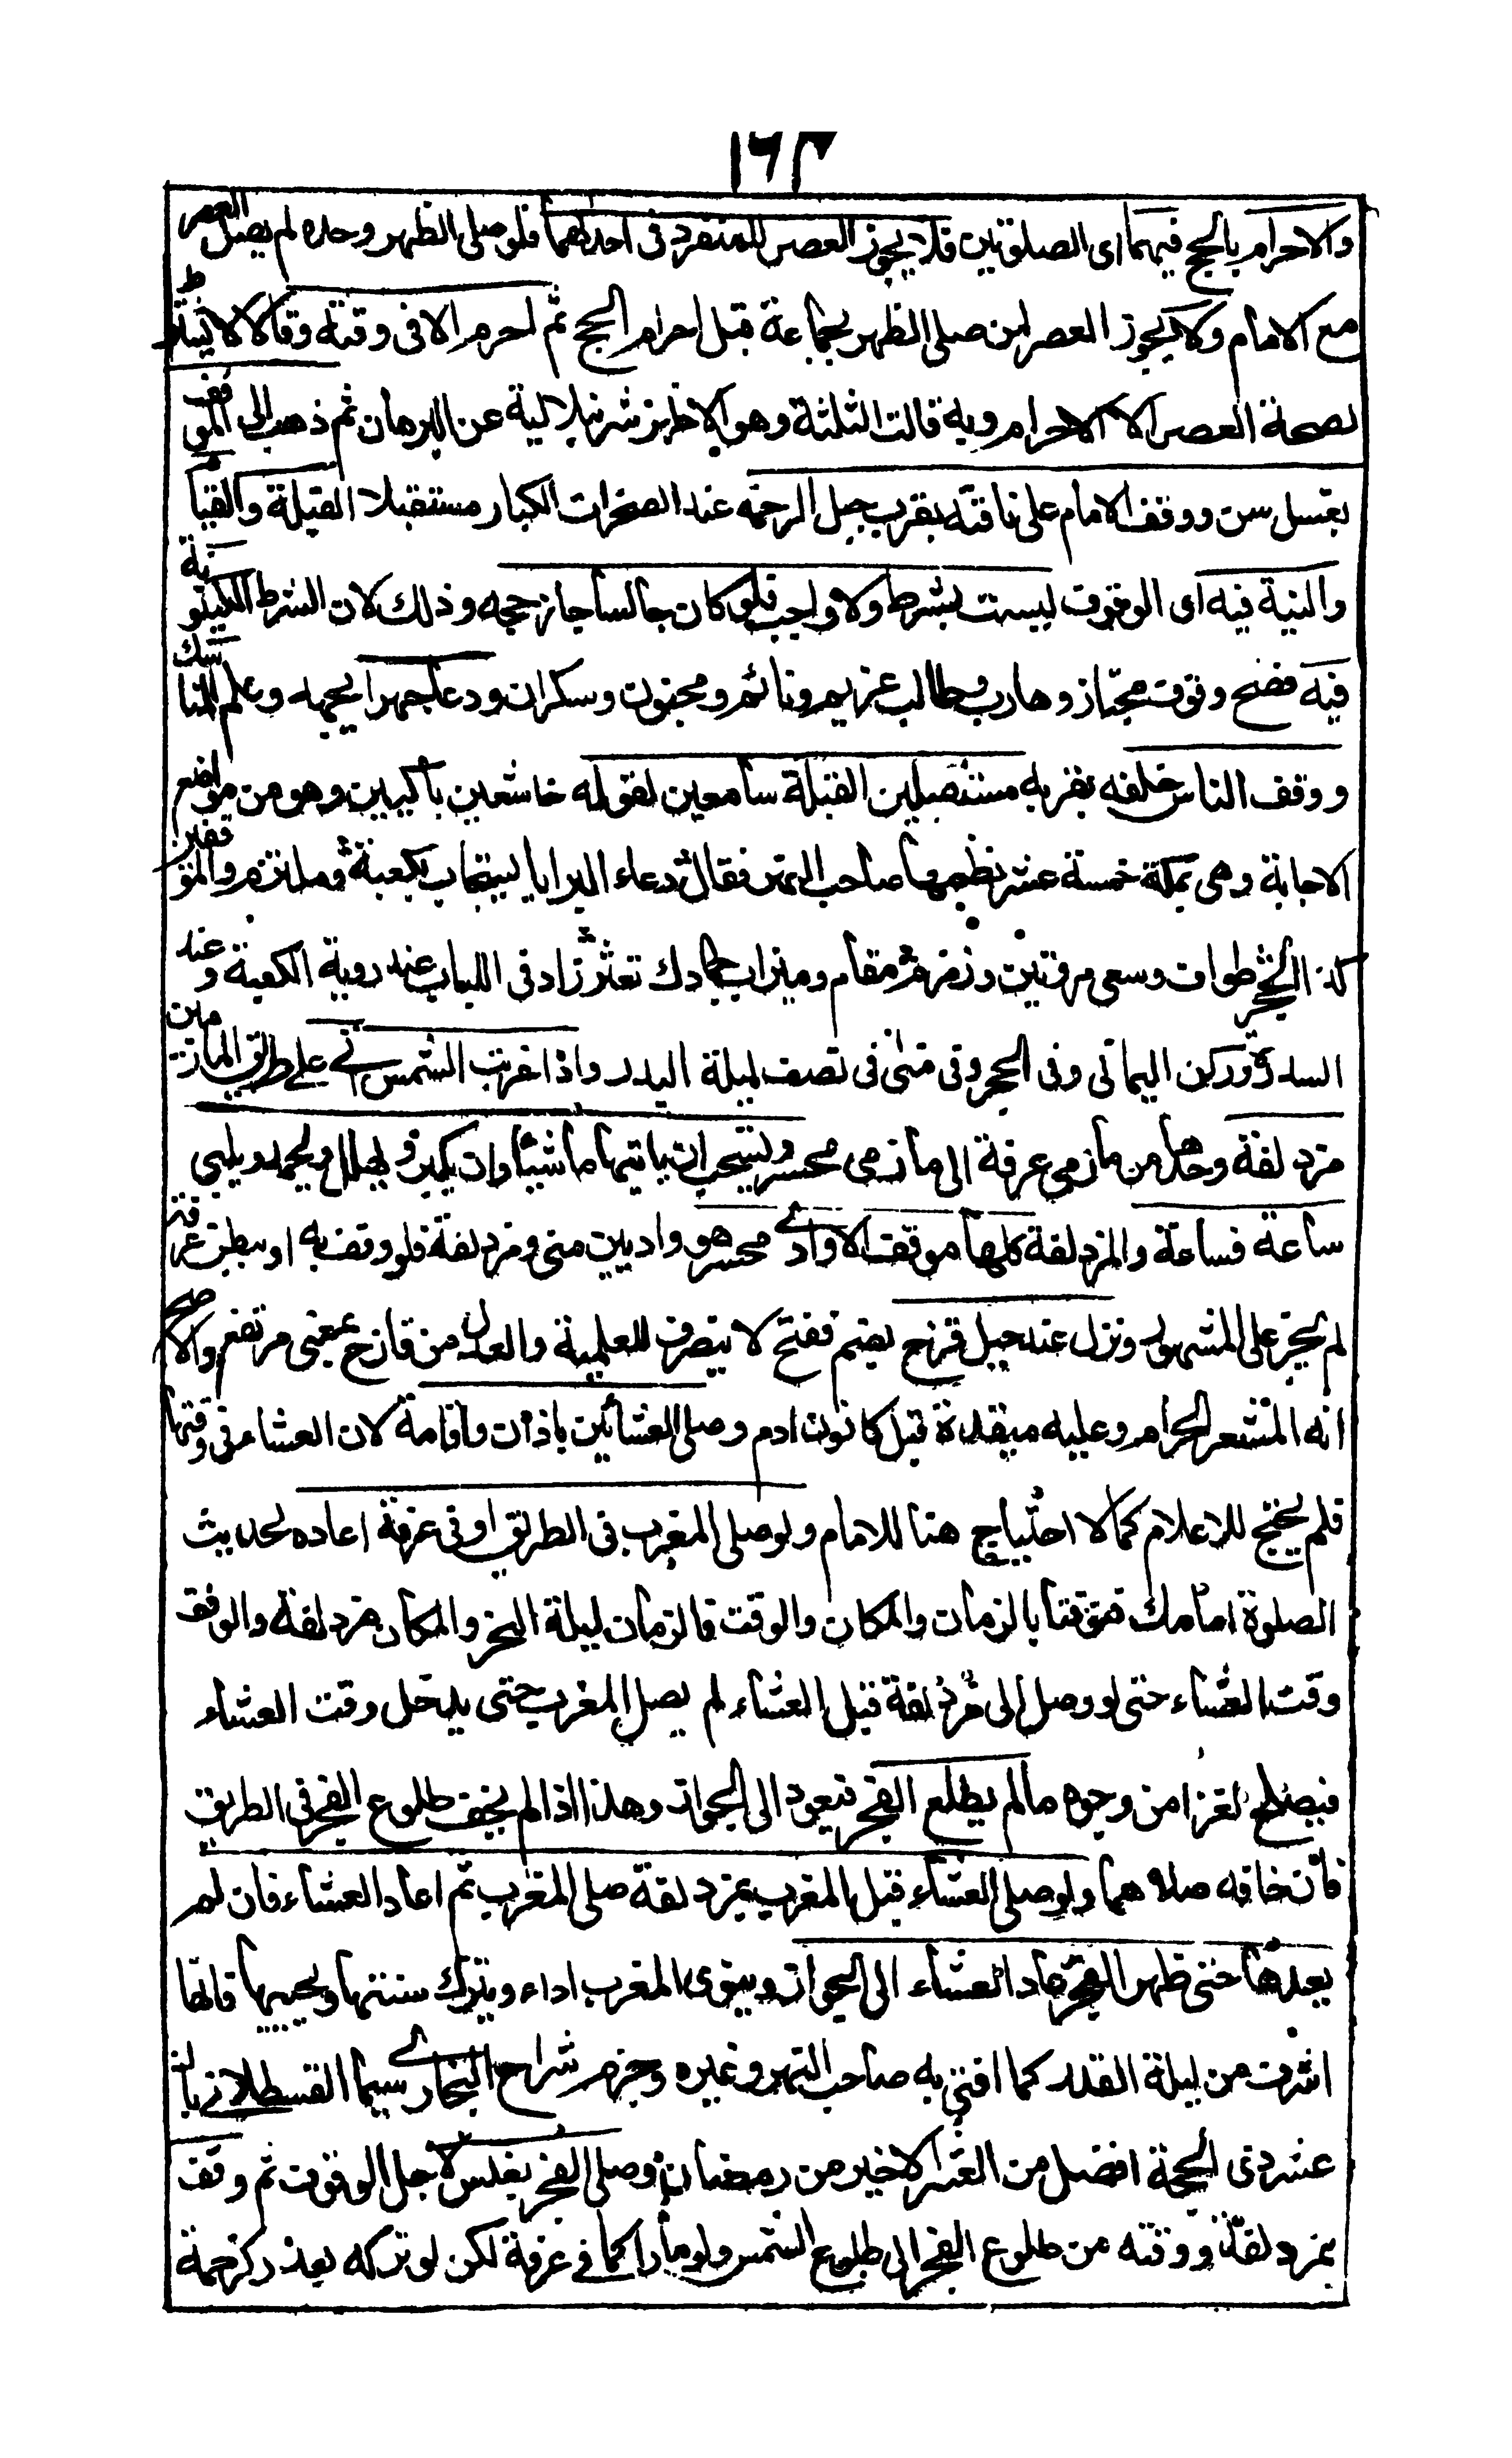 ١٦٣
والاحرام بالحج فيهما اى الصلوتين فلا يجوز العصر للمنفرد فى احدهما فلو صلى الظهر وحده لم يصل العصر
مع الامام ولا يجوز العصر لمن صلى الظهر بجماعة قبل احرام الحج ثم احرم الا فى وقته وقالا لا يشترط
لصحة العصر الا الاحرام وبه قالت الثلثة وهو الاظهر شرنبلالية عن البرهان ثم ذهب الى الموقف
بغسل سن ووقف الامام على ناقته بقرب جبل الرحمة عند الصخرات الكبار مستقبلا القبلة والقيام
والنية فيه اى الوقوف ليست بشرط ولا واجب فلو كان جالسا جاز حجه وذلك لان الشرط الكينونة
فيه فصح وقوف مجتاز وهارب وطالب غريم ونائم ومجنون وسكران ودعا جهرا بجهد وعلم المناسك
ووقف الناس خلفه بقربه مستقبلين القبلة سامعين لقوله خاشعين باكين وهو من مواضع
الاجابة وهى بمكة خمسة عشر نظمها صاحب النهر فقال دعاء البرايا يستجاب بكعبة وملتزم والموقفين
كذا الحجر طواف وسعى مروتين وزمزم مقام وميزاب جمارك تعتبر زاد فى اللباب عند روية الكعبة وعند
السدرة وركن اليمانى وفى الحجر وفى منى فى نصف ليلة البدر واذا غربت الشمس اتى على طريق المازمين
مزدلفة وحدها من مازمى عرفة الى مازمى محسر ويستحب ان ياتيها ماشيا وان يكبر ويهلل ويحمد ويلبى
ساعة فساعة والمزدلفة كلها موقف الا وادى محسر هو واد بين منى ومزدلفة فلو وقف به او ببطن عرفة
لم يجز على المشهور ونزل عند جبل قزح بضم ففتح لا ينصرف للعلمية والعدل من قازح بمعنى مرتفع والاصح
انه المشعر الحرام وعليه ميقدة قيل كانون ادم وصلى العشائين باذان واقامة لان العشاء فى وقتها
فلم يحتج للاعلام كما لا احتياج هنا للامام ولو صلى المغرب فى الطريق او فى عرفة اعاده لحديث
الصلوة امامك فتوقتا بالزمان والمكان والوقت فالزمان ليلة النحر والمكان مزدلفة والوقت
وقت العشاء حتى لو وصل الى مزدلفة قبل العشاء لم يصل المغرب حتى يدخل وقت العشاء
فيصلح لغزا من وجوه ما لم يطلع الفجر فيعود الى الجواز وهذا اذا لم يخف طلوع الفجر فى الطريق
فان خافه صلاهما ولو صلى العشاء قبل المغرب بمزدلفة صلى المغرب ثم اعاد العشاء فان لم
يعدها حتى ظهر الفجر عاد العشاء الى الجواز وينوى المغرب اداء ويترك سنتها ويحييها فانها
اشرف من ليلة القدر كما افتى به صاحب النهر وغيره وجزم شراح البخارى سيما القسطلانى بان
عشر ذى الحجة افضل من العشر الاخير من رمضان وصلى الفجر بغلس لاجل الوقوف ثم وقف
بمزدلفة ووقته من طلوع الفجر الى طلوع الشمس ولو مارا كما فى عرفة لكن لو تركه بعذر كزحمة